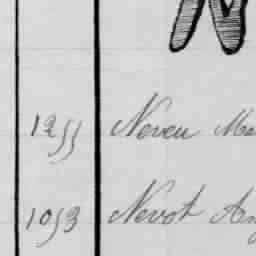 N
1255 Neveu Ma
1053 Nevot Ang